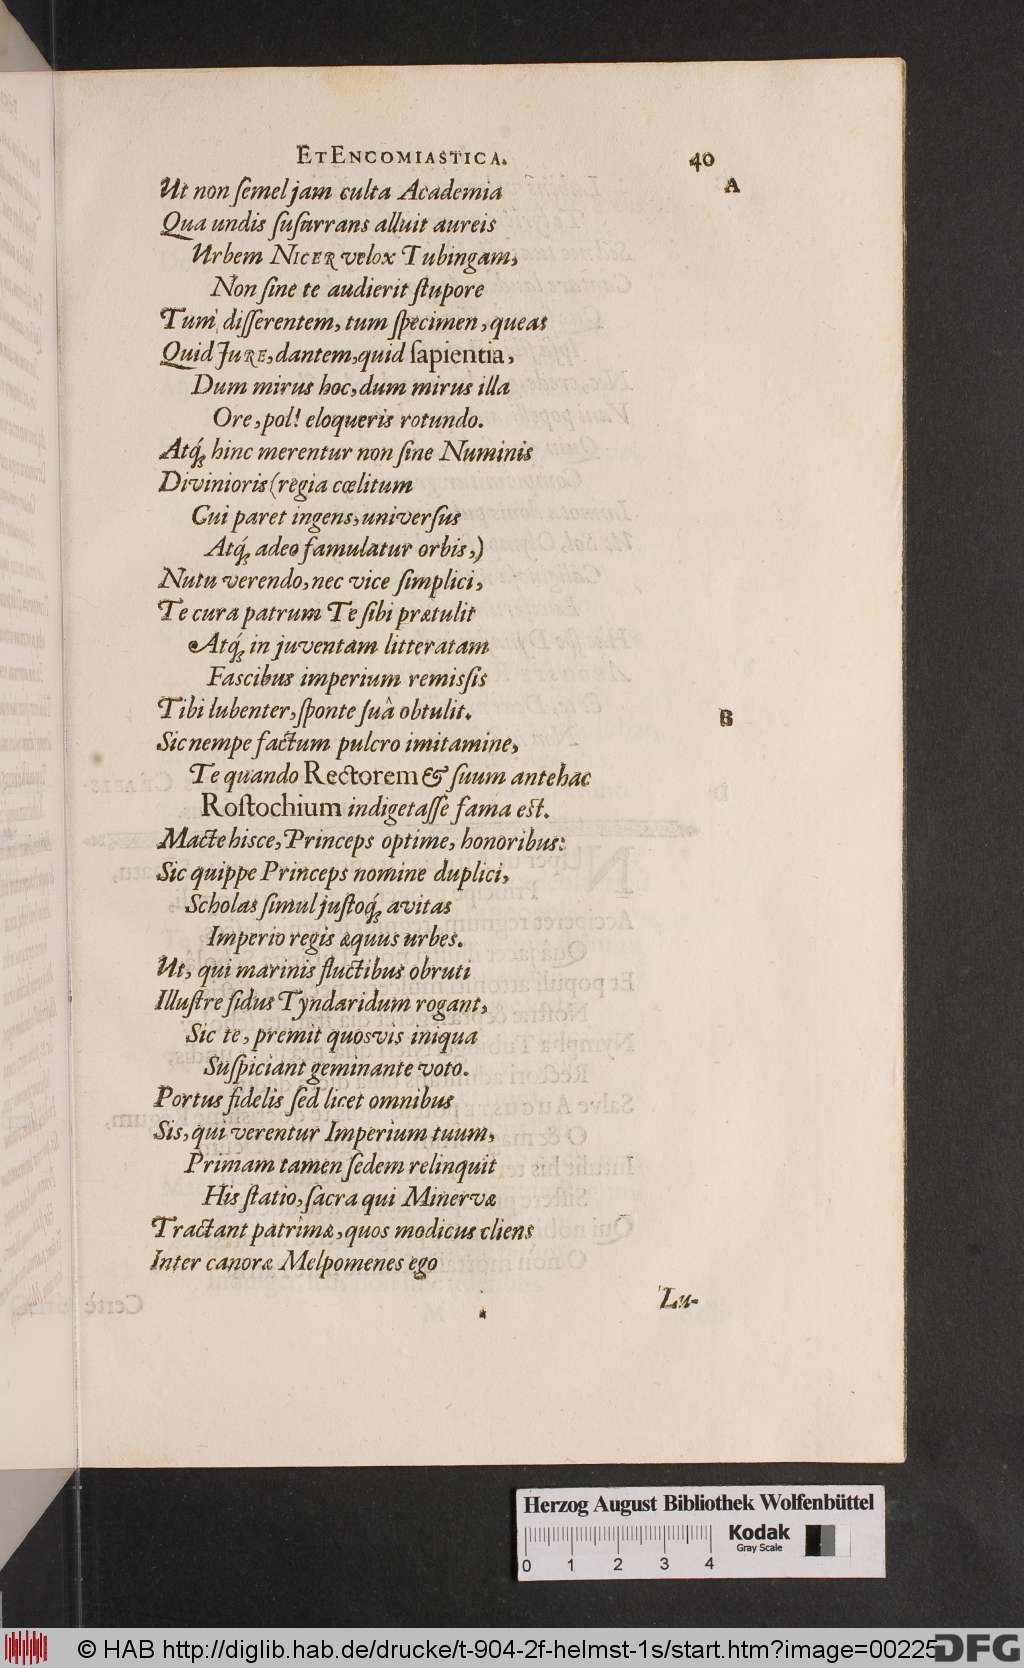 ET ENCOMIASTICA. 40
A
Ut non ſemel jam culta Academia
Qua undis ſuſurrans alluit aureis
Urbem NICER velox Tubingam,
Non ſine te audierit ſtupore
Tum diſſerentem, tum ſpecimen, queas
Quid JURE, dantem, quid ſapientia,
Dum mirus hoc, dum mirus illa
Ore, pol! eloqueris rotundo.
Atq́; hinc merentur non ſine Numinis
Divinioris (regia cœlitum
Cui paret ingens, univerſus
Atq́; adeo famulatur orbis,)
Nutu verendo, nec vice ſimplici,
Te cura patrum Te ſibi prætulit
Atq́; in juventam litteratam
Faſcibus imperium remiſſis
Tibi lubenter, ſponte ſuâ obtulit.
B
Sic nempe factum pulcro imitamine,
Te quando Rectorem & ſuum antehac
Roſtochium indigetaſſe fama eſt.
Macte hisce, Princeps optime, honoribus:
Sic quippe Princeps nomine duplici,
Scholas ſimul juſtoq́; avitas
Imperio regis æquus urbes.
Ut, qui marinis fluctibus obruti
Illuſtre ſidus Tyndaridum rogant,
Sic te, premit quosvis iniqua
Suſpiciant geminante voto.
Portus fidelis ſed licet omnibus
Sis, qui verentur Imperium tuum,
Primam tamen ſedem relinquit
His ſtatio, ſacra qui Minervæ
Tractant patrimæ, quos modicus cliens
Inter canoræ Melpomenes ego
Lu-
Herzog August Bibliothek Wolfenbüttel
0 1 2 3 4
Kodak
Gray Scale
© HAB http://diglib.hab.de/drucke/t-904-2f-helmst-1s/start.htm?image=00225
DFG